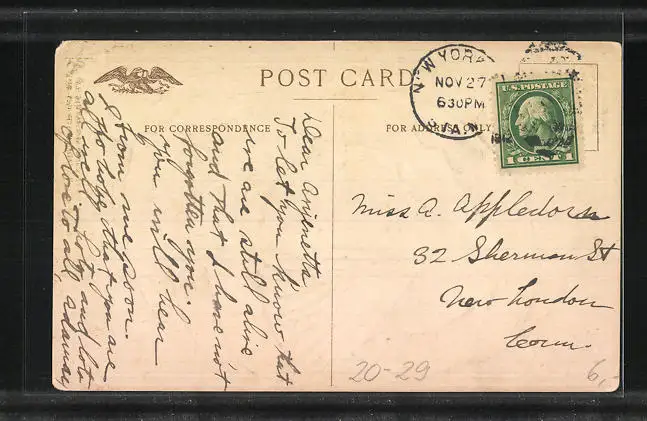 POST CARD
FOR CORRESPONDENCE
FOR ADDRESS ONLY
NEW YORK
NOV 27
630PM
STA.
U.S. POSTAGE
1 CENT 1
Dear
To let you know that
we are still alive
and that I have not
forgotten you.
you will hear
from me soon.
I do hope that you are
all well, and lots
of love to all
Miss A. Appledorn
32 Sherman St
New London
Conn.
20-29
6,-